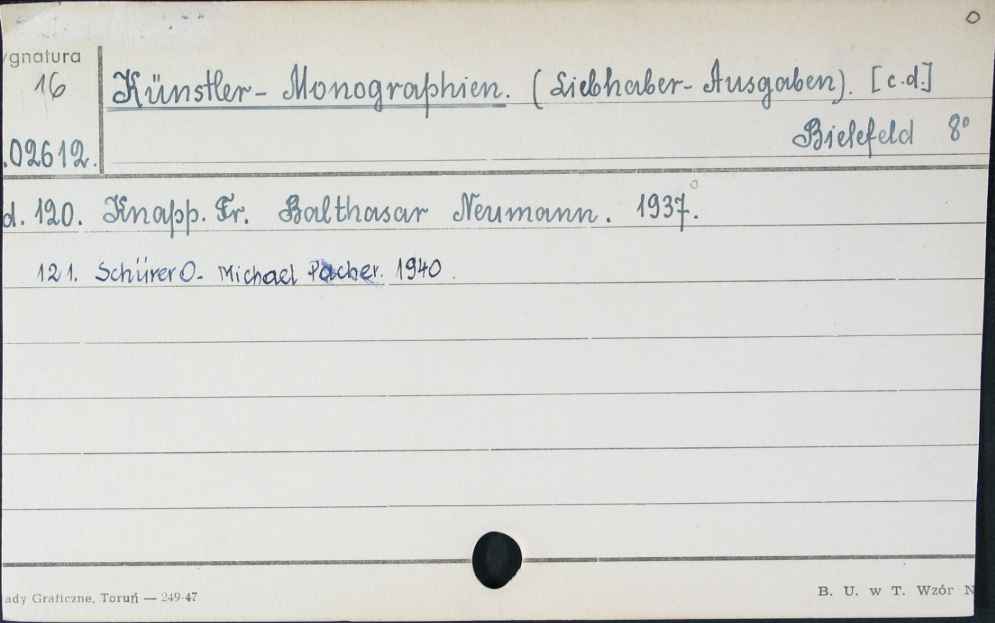 ygnatura
16
.02612.
Künstler-Monographien. (Liebhaber-Ausgaben). [c.d.]
Bielefeld 8°
d. 120. Knapp. Fr. Balthasar Neumann. 1937.
121. Schürer O. Michael Pacher. 1940.
ady Graficzne, Toruń — 249-47
B. U. w T. Wzór N